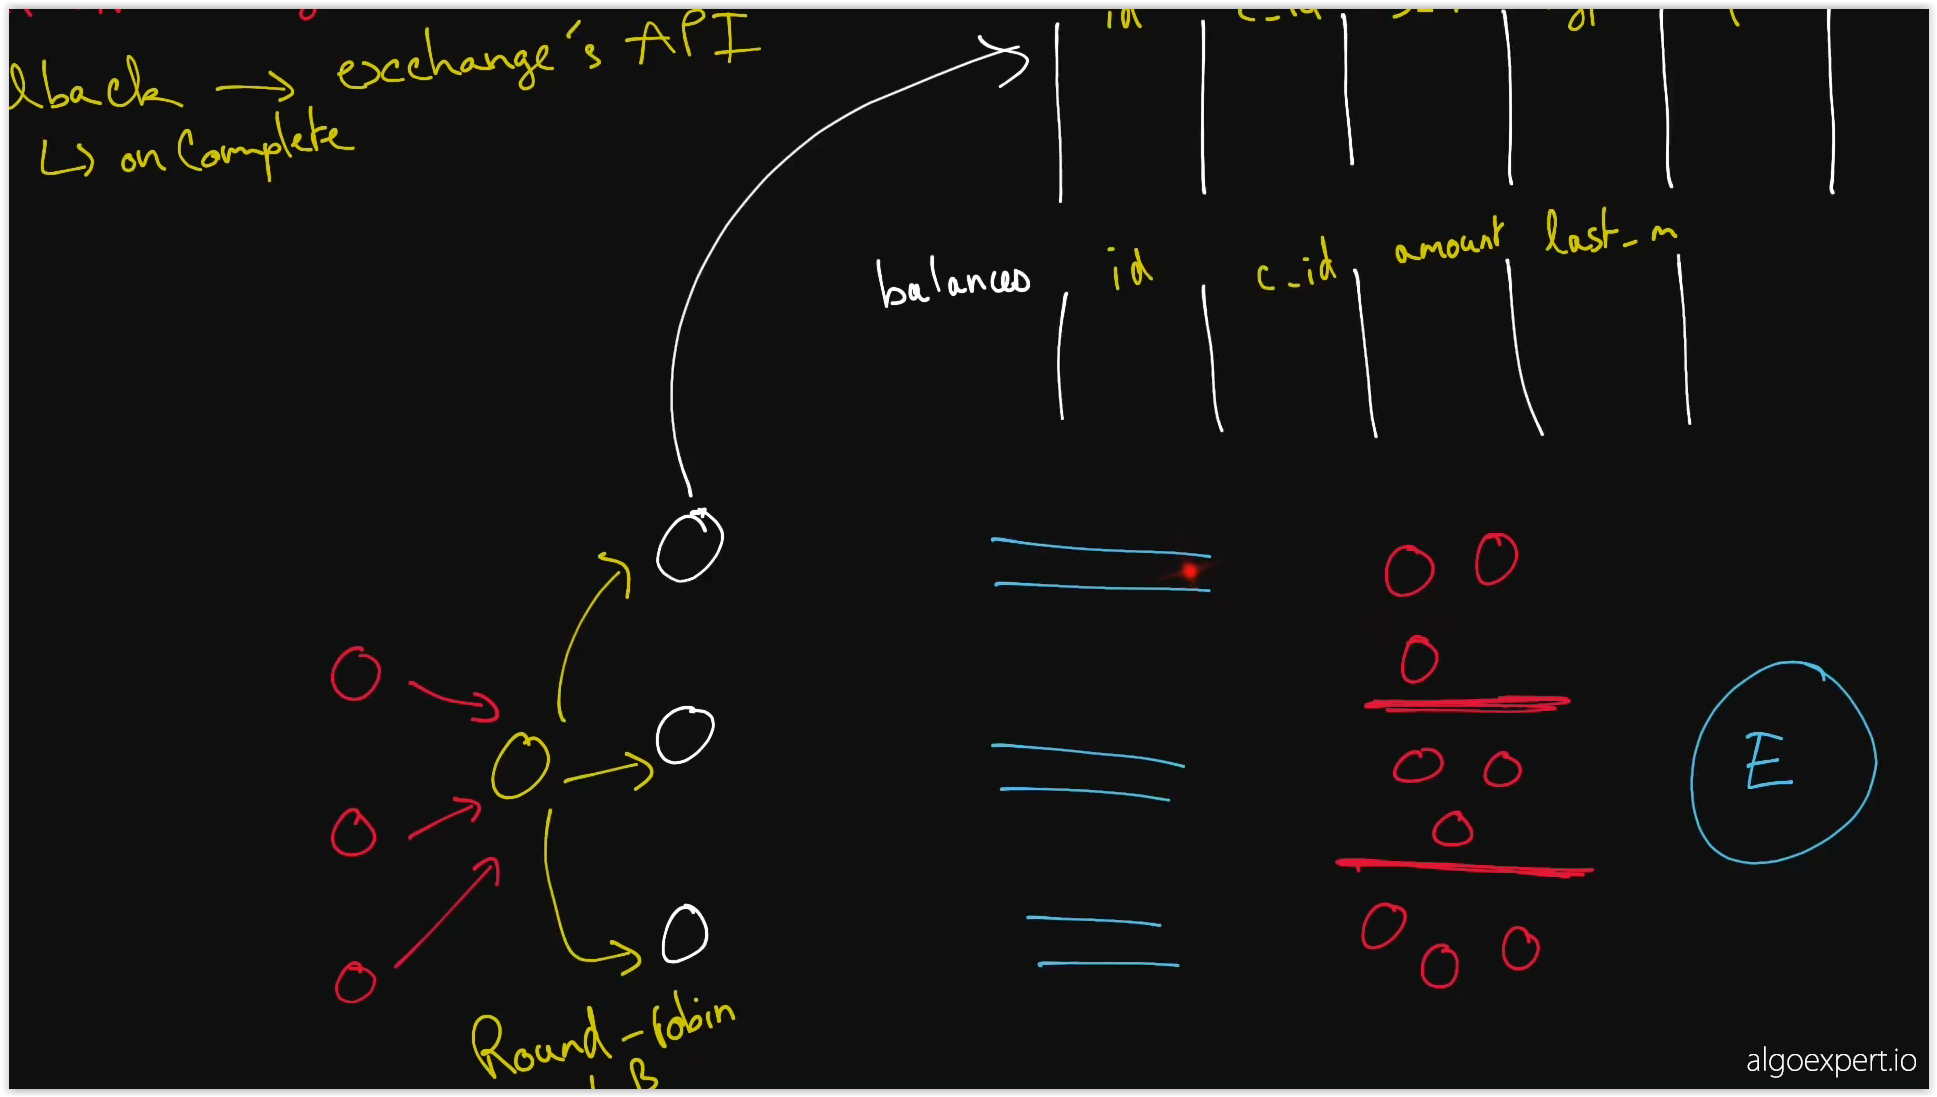 exchange's API
lback →
↳ onComplete
id c_id
balances id c_id amount last_m
E
Round-robin
LB
algoexpert.io